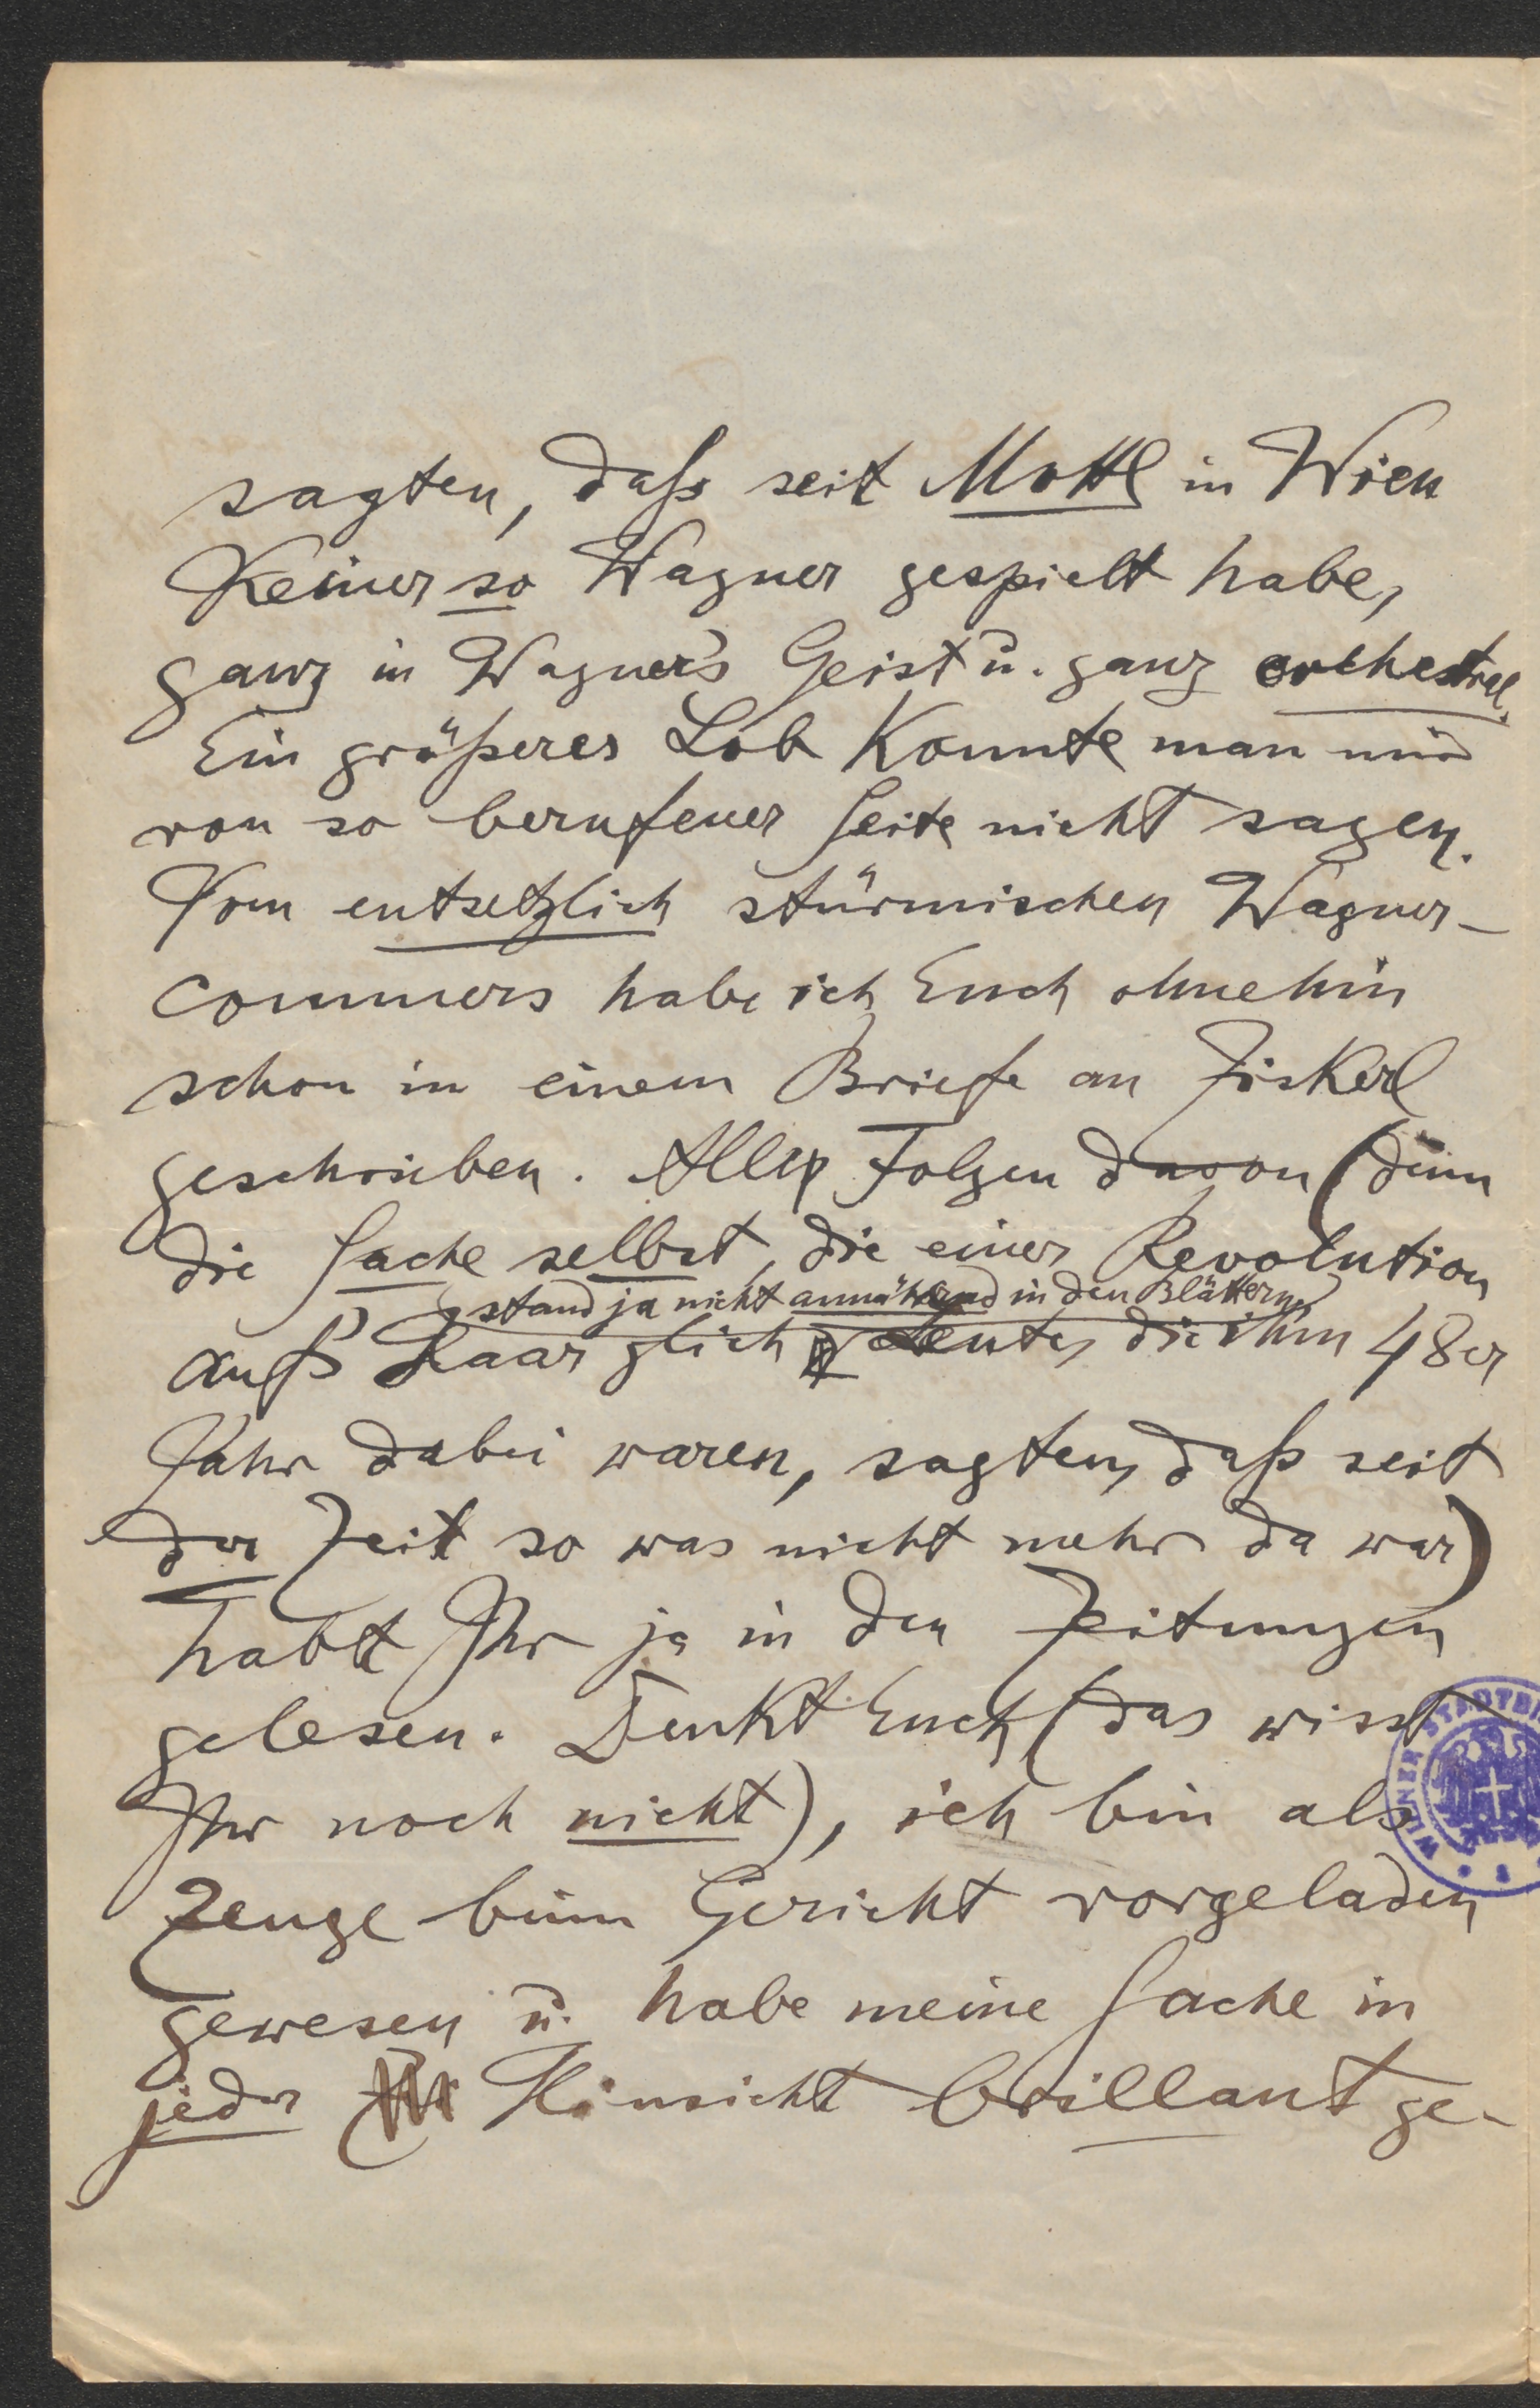 sagten, daß seit Mottl in Wien
Keiner so Wagner gespielt habe,
ganz in Wagner's Geist u. ganz orchestral.
Ein größeres Lob konnte man mir
von so berufener Seite nicht sagen.
Vom entsetzlich stürmischen Wagner-
commers habe ich Euch ohnehin
schon in einem Briefe an Fiskerl
geschrieben. Alle Folgen davon (denn
die Sache selbst, die einer Revolution
stand ja nicht annähernd in den Blättern
aufs Haar glich Leute, die im 48er
Jahr dabei waren, sagten, daß seit
der Zeit so was nicht mehr da war)
habt Ihr ja in den Zeitungen
gelesen. Denkt Euch (das wisst
Ihr noch nicht), ich bin als
Zeuge beim Gericht vorgeladen
gewesen u. habe meine Sache in
jeder Hinsicht brillant ge-
WIENER STADTBI